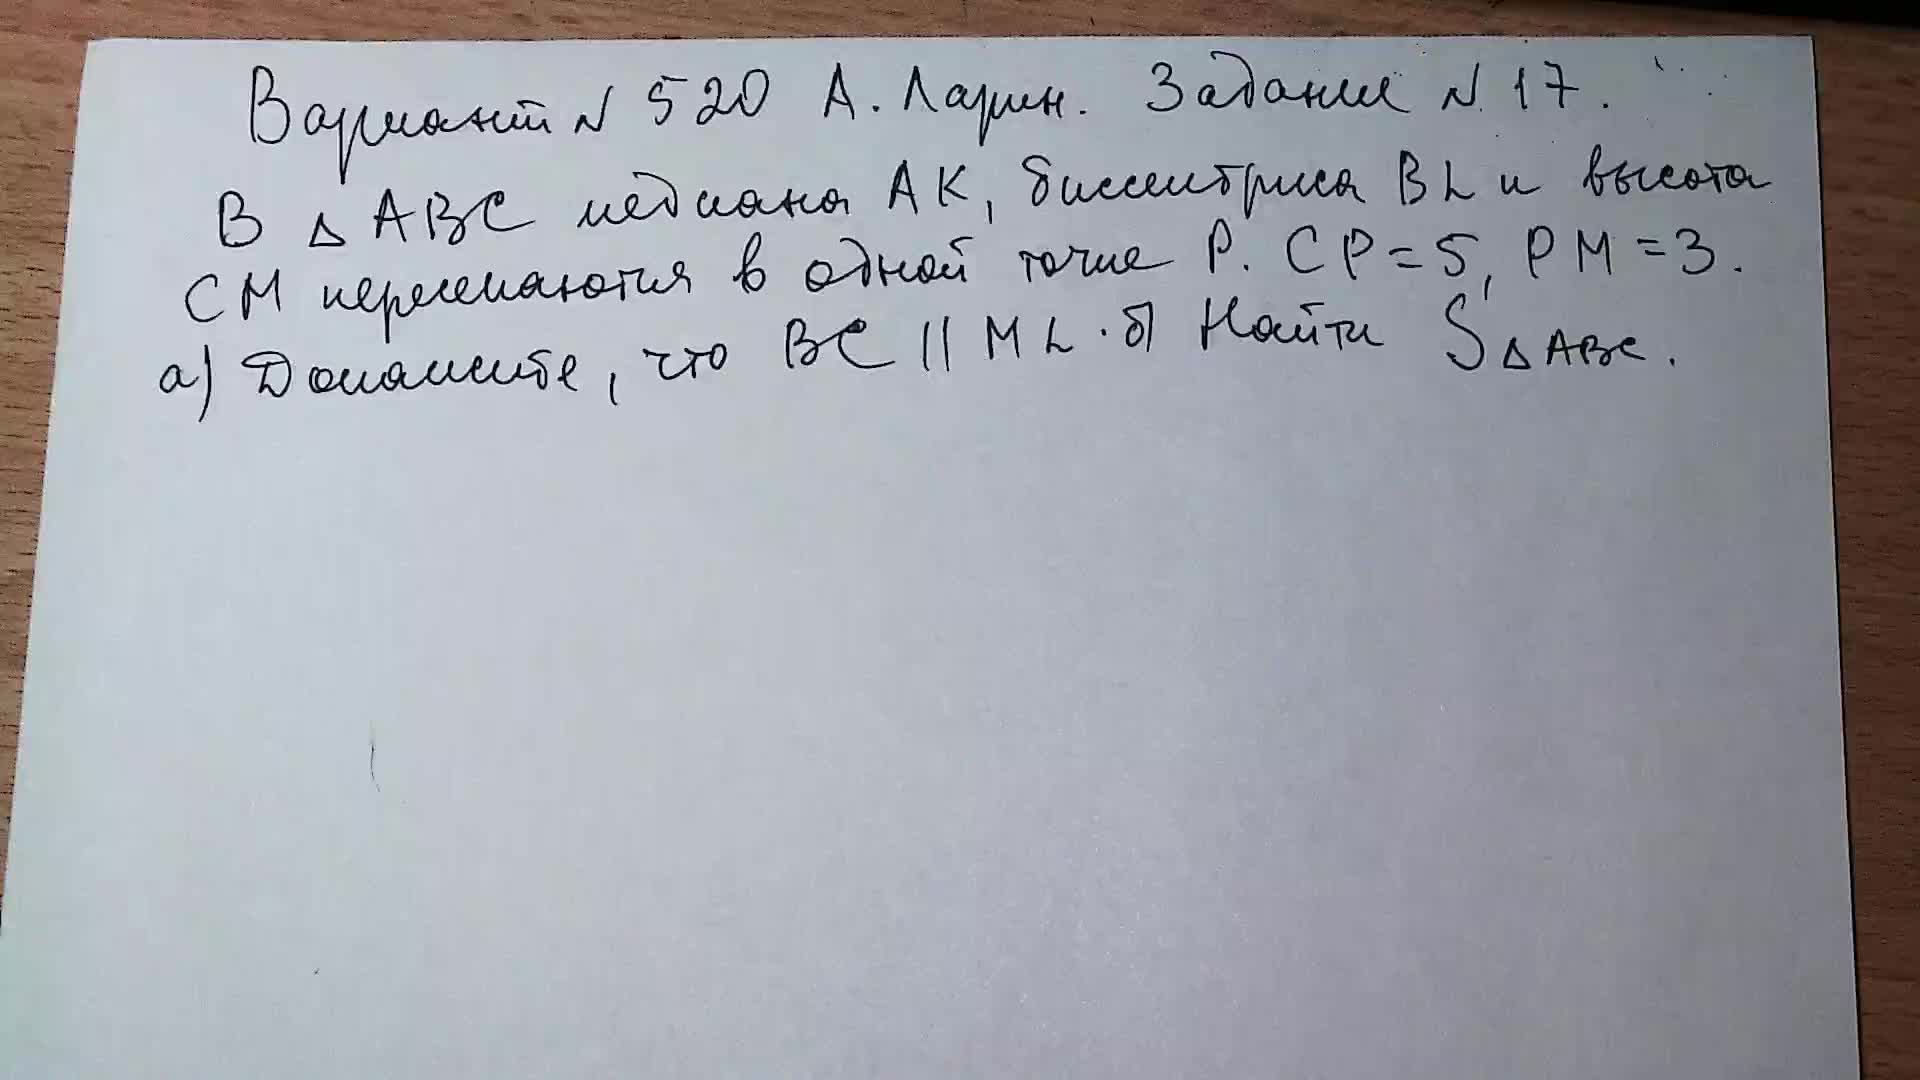 Вариант N 520 А. Ларин. Задание N 17.
В △ ABC медиана AK, биссектриса BL и высота
CM пересекаются в одной точке P. CP = 5, PM = 3.
а) Докажите, что BC || ML. б) Найти S△ABC.